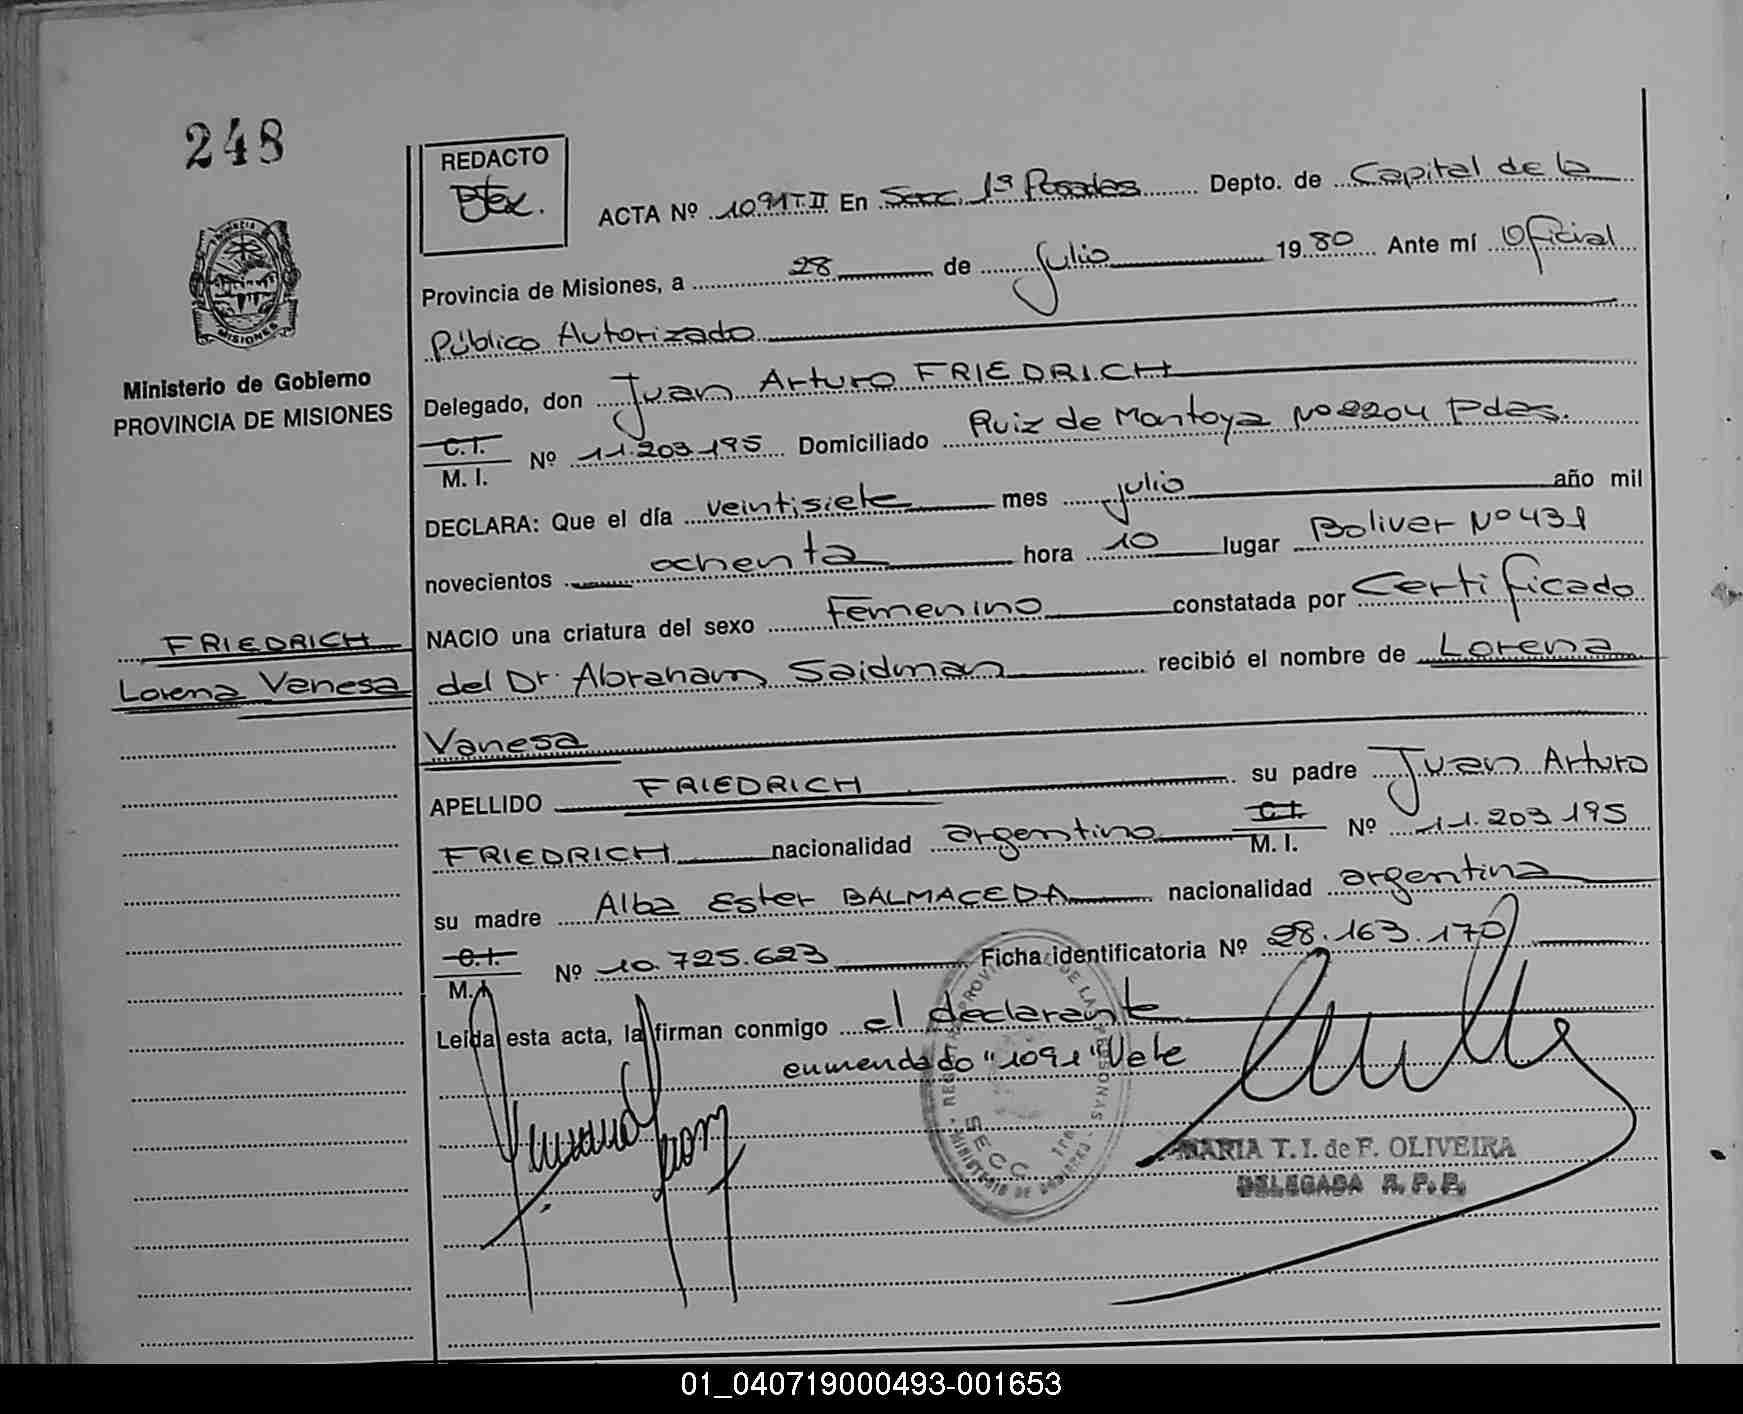 248
REDACTO
ACTA Nº 1091 T.II En Secc. 1ª Posadas Depto. de Capital de la
Provincia de Misiones, a 28 de Julio 1980 Ante mí Oficial
Público Autorizado
MISIONES
Ministerio de Gobierno
PROVINCIA DE MISIONES
Delegado, don Juan Arturo FRIEDRICH
C.I.
M. I. Nº 11.203.195 Domiciliado Ruiz de Montoya Nº 2204 Pdas.
DECLARA: Que el día veintisiete mes julio año mil
novecientos ochenta hora 10 lugar Bolivar Nº 431
NACIO una criatura del sexo Femenino constatada por Certificado
FRIEDRICH
Lorena Vanesa
del Dr. Abraham Saidman recibió el nombre de Lorena
Vanesa
APELLIDO FRIEDRICH su padre Juan Arturo
FRIEDRICH nacionalidad argentino C.I. M. I. Nº 11.203.195
su madre Alba Ester BALMACEDA nacionalidad argentina
C.I.
M. I. Nº 10.725.623 Ficha identificatoria Nº 28.163.170
Leída esta acta, la firman conmigo el declarante
enmendado "1091" Vale
MARIA T. I. de F. OLIVEIRA
DELEGADA R. P. P.
01_040719000493-001653